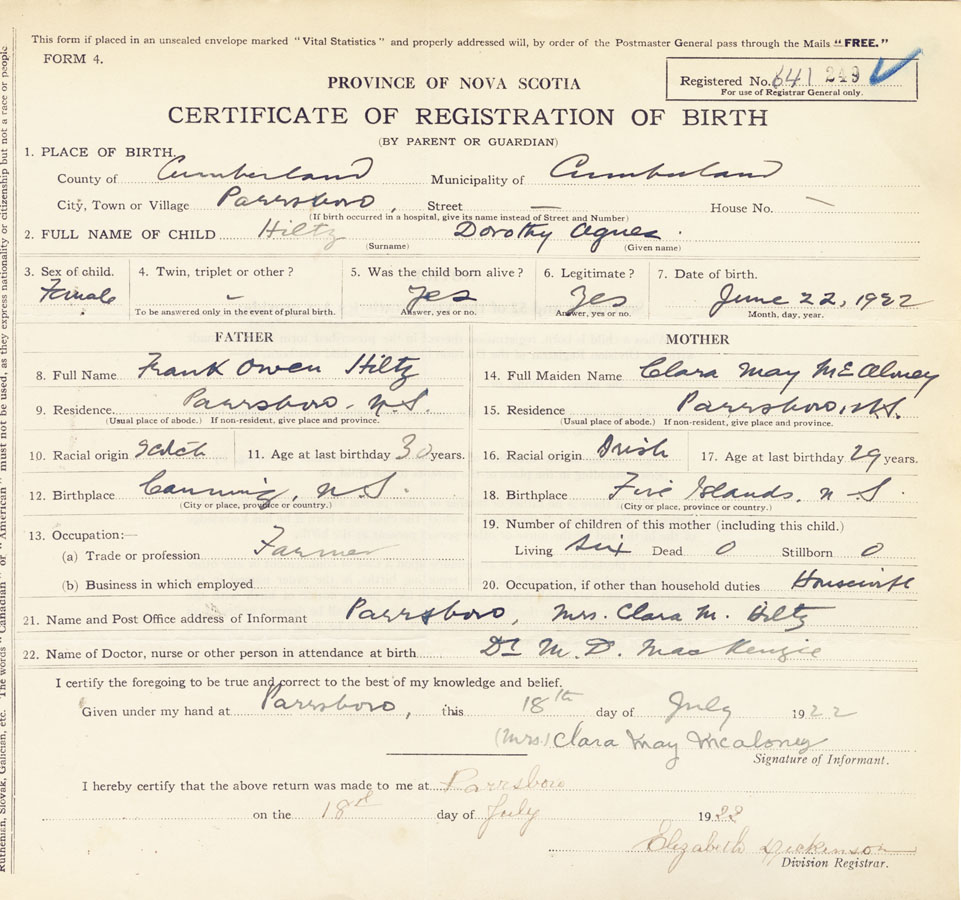 This form if placed in an unsealed envelope marked "Vital Statistics" and properly addressed will, by order of the Postmaster General pass through the Mails "FREE."
FORM 4.
PROVINCE OF NOVA SCOTIA
Registered No. 641 249
For use of Registrar General only.
CERTIFICATE OF REGISTRATION OF BIRTH
(BY PARENT OR GUARDIAN)
1. PLACE OF BIRTH.
County of Cumberland Municipality of Cumberland
City, Town or Village Parrsboro, Street — House No. —
(If birth occurred in a hospital, give its name instead of Street and Number)
2. FULL NAME OF CHILD Hiltz Dorothy Agnes.
(Surname) (Given name)
3. Sex of child. 4. Twin, triplet or other? 5. Was the child born alive? 6. Legitimate? 7. Date of birth.
Female - Yes Yes June 22, 1922
To be answered only in the event of plural birth. Answer, yes or no. Answer, yes or no. Month, day, year.
FATHER MOTHER
8. Full Name Frank Owen Hiltz 14. Full Maiden Name Clara May McAloney
9. Residence. Parrsboro. N.S. 15. Residence Parrsboro, N.S.
(Usual place of abode.) If non-resident, give place and province. (Usual place of abode.) If non-resident, give place and province.
10. Racial origin Scotch 11. Age at last birthday 30 years. 16. Racial origin Irish 17. Age at last birthday 29 years.
12. Birthplace Canning, N.S. 18. Birthplace Five Islands. N.S.
(City or place, province or country.) (City or place, province or country.)
13. Occupation:— 19. Number of children of this mother (including this child.)
(a) Trade or profession Farmer Living six Dead 0 Stillborn 0
(b) Business in which employed 20. Occupation, if other than household duties Housewife
21. Name and Post Office address of Informant Parrsboro, Mrs. Clara M. Hiltz
22. Name of Doctor, nurse or other person in attendance at birth Dr M. D. MacKenzie
I certify the foregoing to be true and correct to the best of my knowledge and belief.
Given under my hand at Parrsboro, this 18th day of July 1922
(Mrs.) Clara May Mcaloney
Signature of Informant.
I hereby certify that the above return was made to me at Parrsboro
on the 18 day of July 19
Elizabeth Dickinson
Division Registrar.
Ruthenian, Slovak, Galician, etc. The words "Canadian" or "American" must not be used, as they express nationality or citizenship but not a race or people